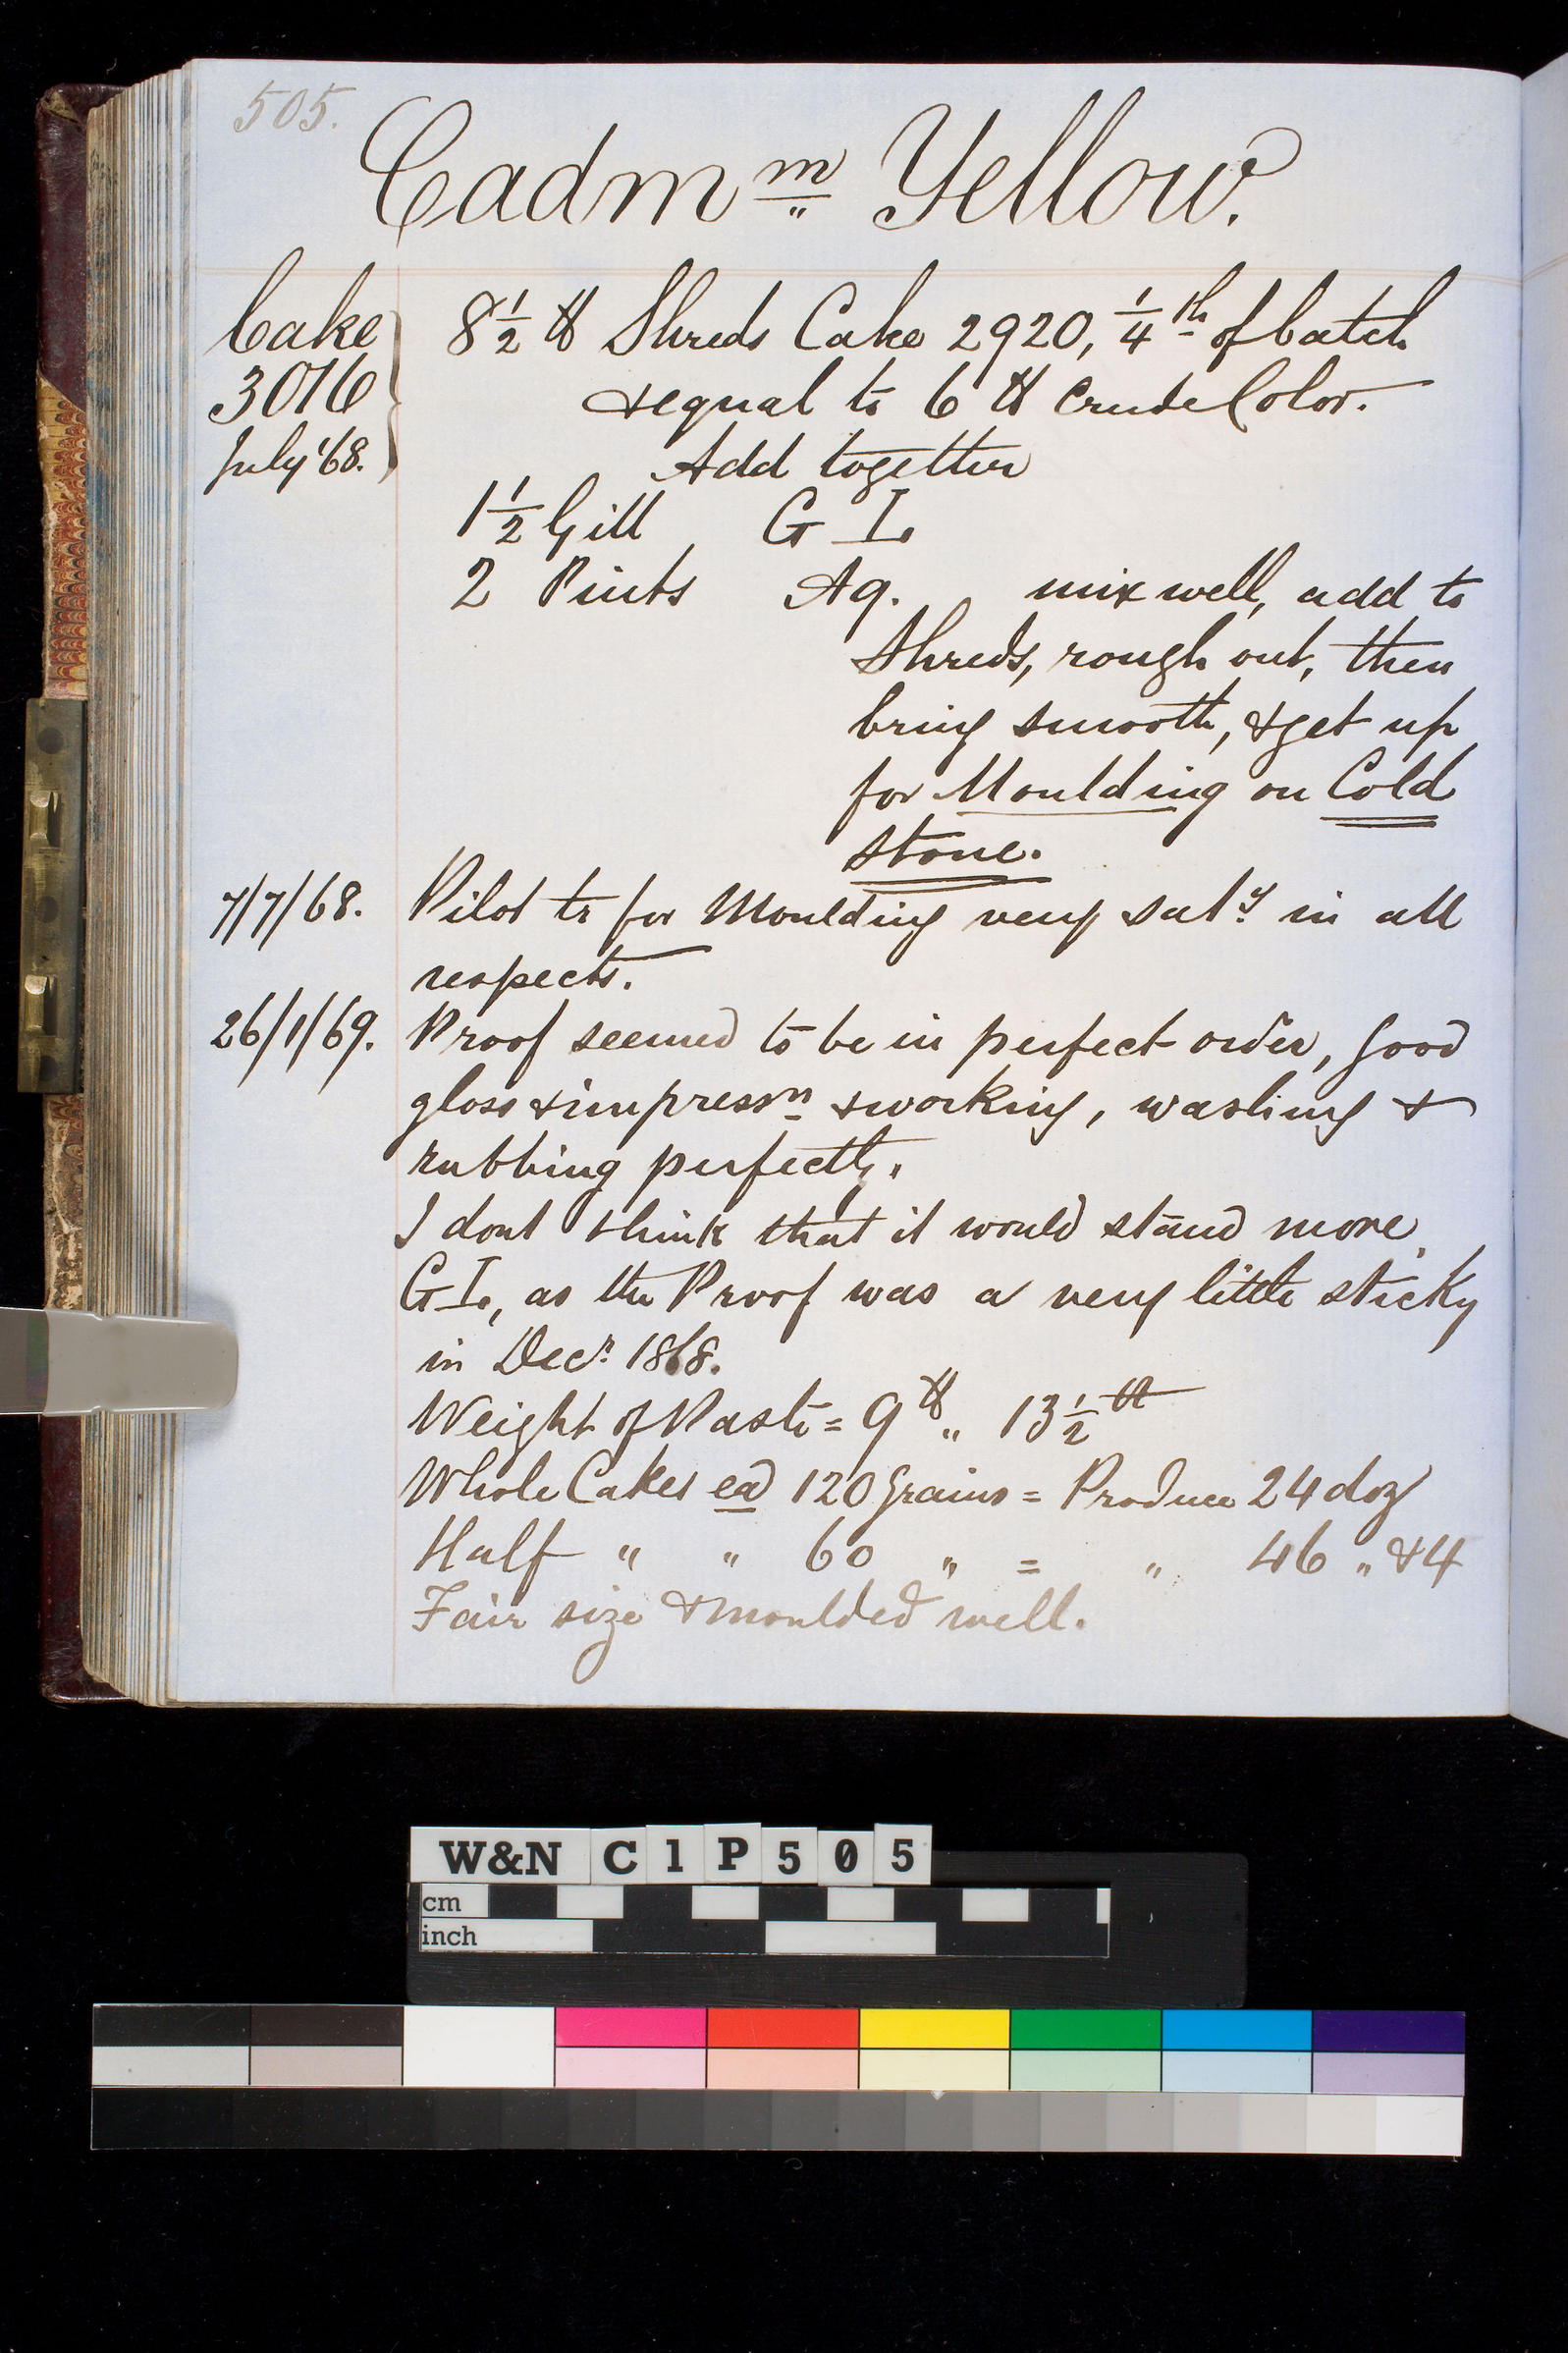 505.
Cadmm Yellow.
Cake 8 1/2 lb Shreds Cake 2920, 1/4th of batch
3016 & equal to 6 lb Crude Color.
July '68. Add together
1 1/2 Gill G I.
2 Pints Aq. mix well, add to
Shreds, rough out, then
bring smooth, & get up
for Moulding on Cold
stone.
7/7/68. Pilot tr for Moulding very saty in all
respects.
26/1/69. Proof seemed to be in perfect order, good
gloss & impressn & working, washing &
rubbing perfectly.
I dont think that it would stand more
G I., as the Proof was a very little sticky
in Decr 1868.
Weight of Paste = 9 lb „ 13 1/2
Whole Cakes ea 120 Grains = Produce 24 doz
Half " " 60 " = " 46 " & 4
Fair size & moulded well.
W&N C1P505
cm
inch